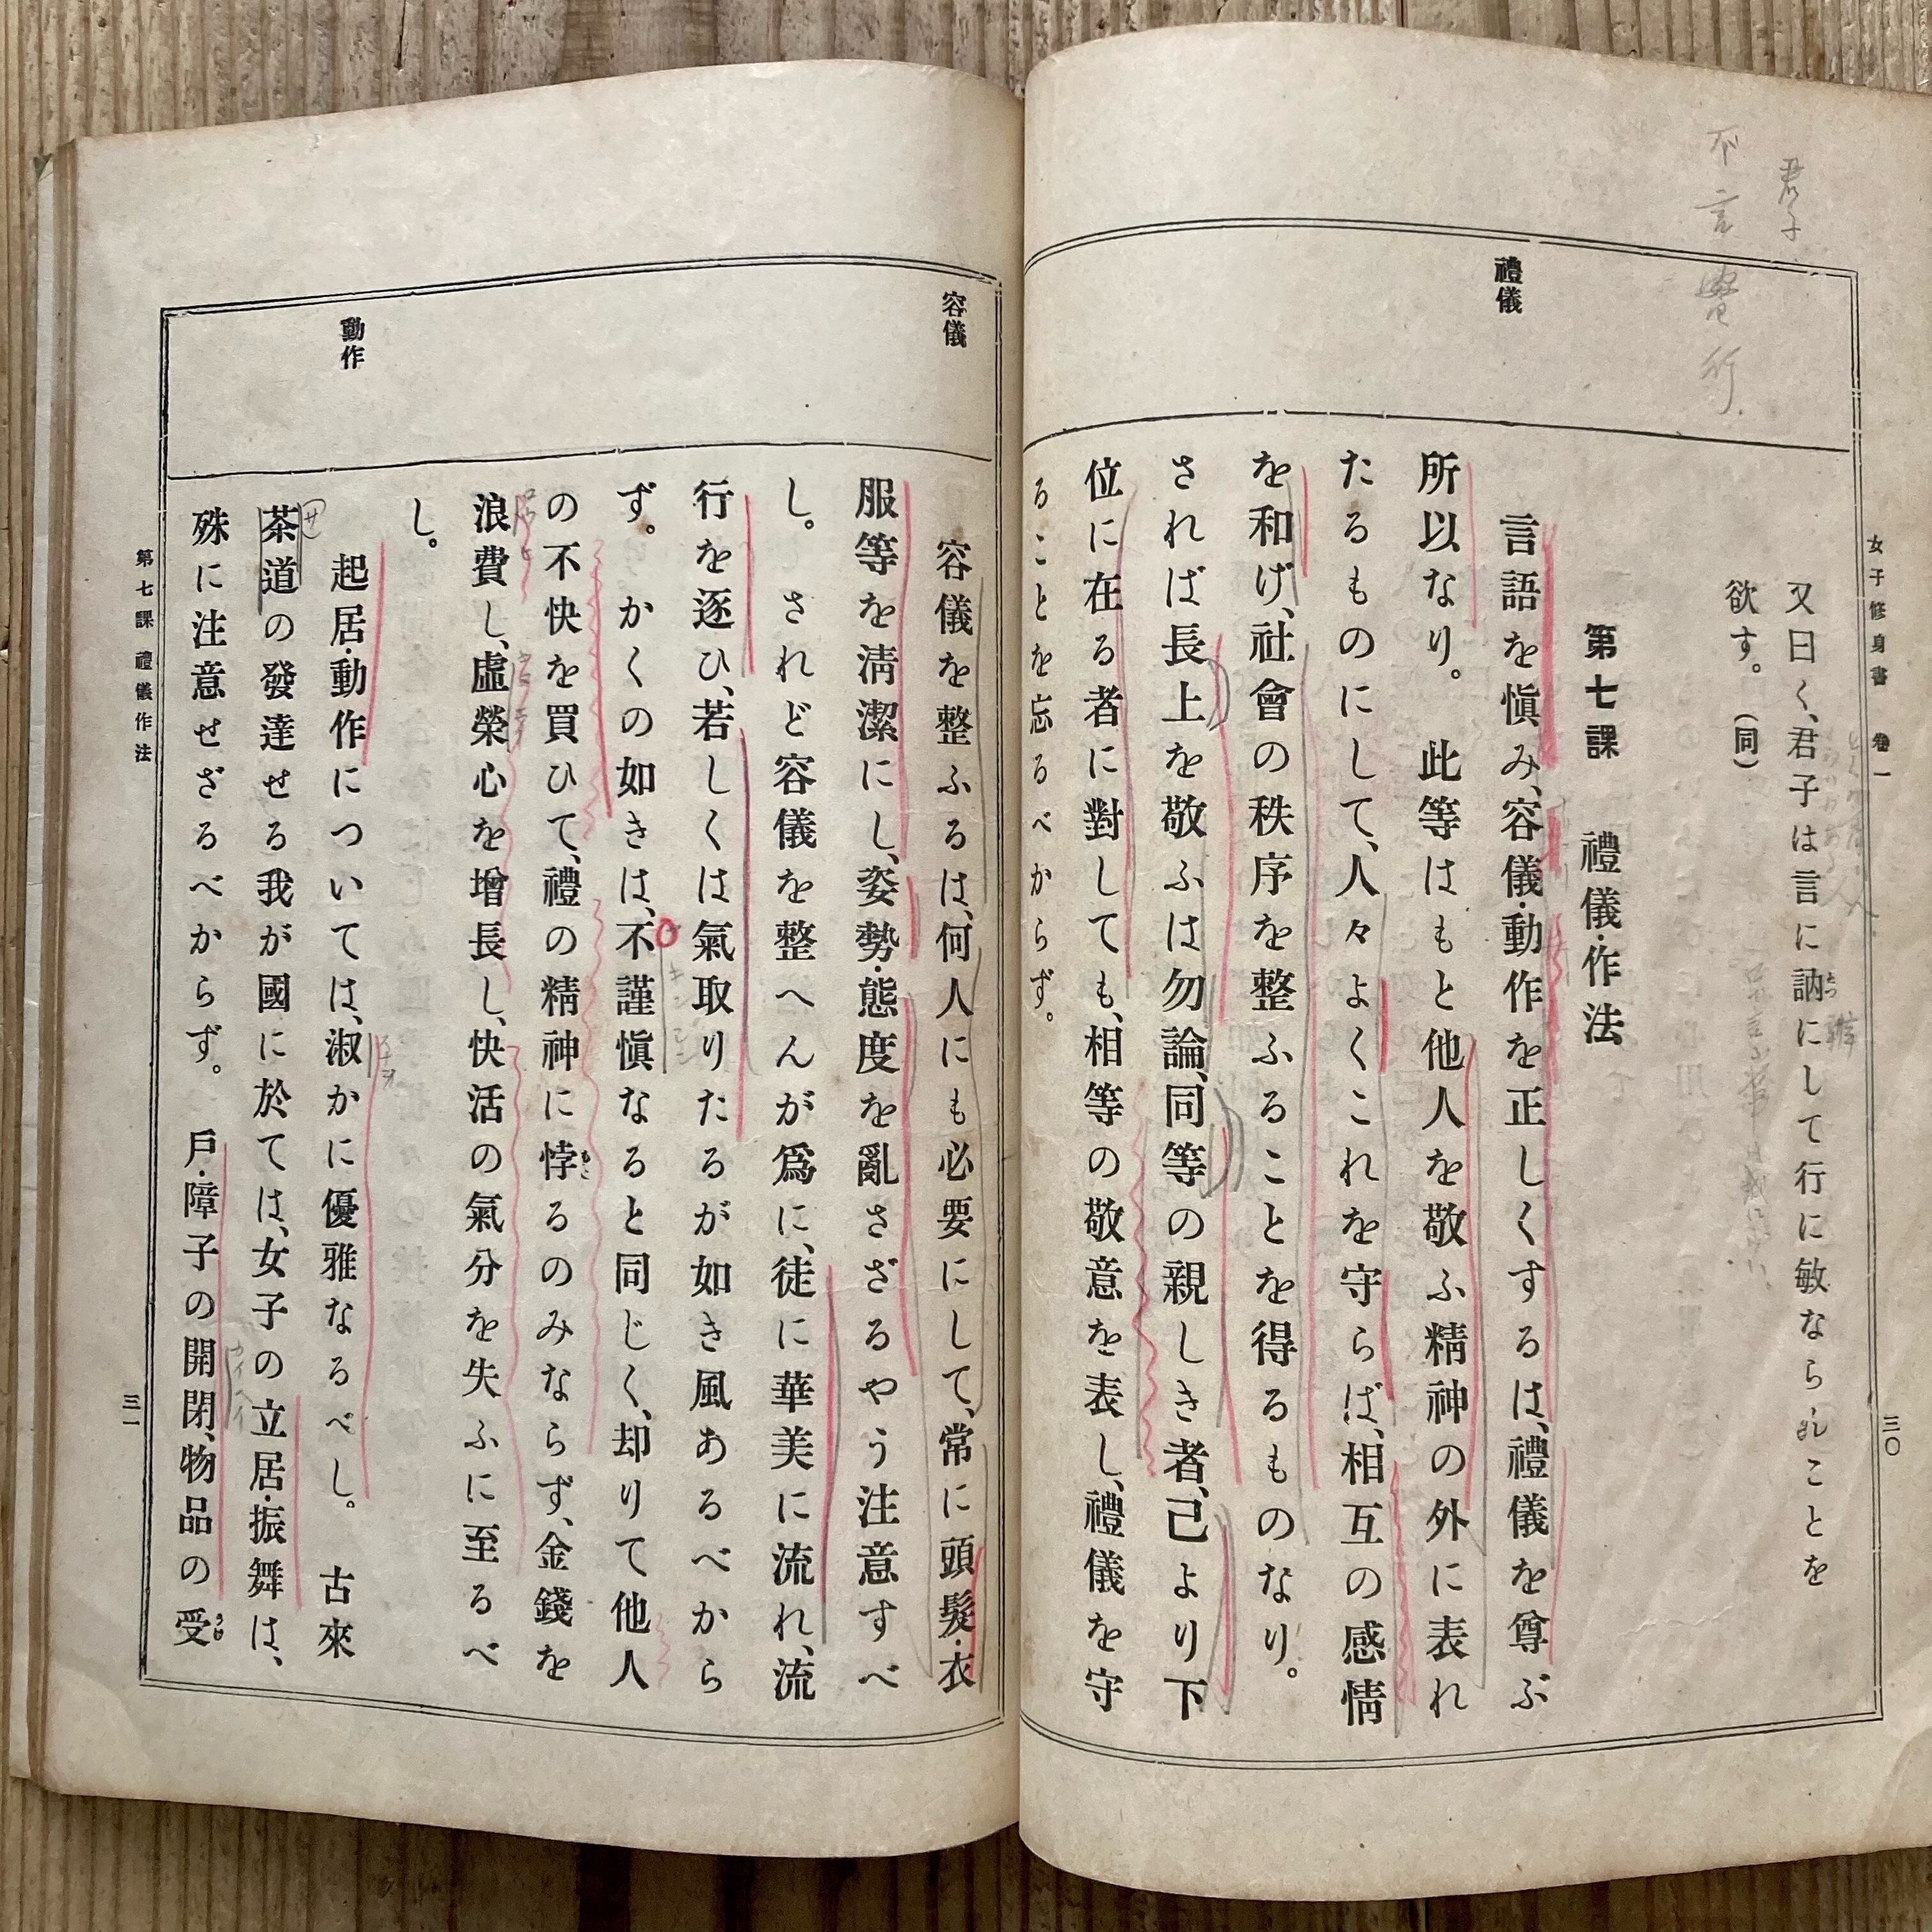 女子修身書 卷一
三〇
君子
不言實行
又曰く、君子は言に訥にして行に敏ならんことを
欲す。(同)
第七課 禮儀・作法
禮儀
言語を愼み、容儀・動作を正しくするは、禮儀を尊ぶ
所以なり。 此等はもと他人を敬ふ精神の外に表れ
たるものにして、人々よくこれを守らば、相互の感情
を和げ、社會の秩序を整ふることを得るものなり。
されば長上を敬ふは勿論、同等の親しき者、己より下
位に在る者に對しても、相等の敬意を表し、禮儀を守
ることを忘るべからず。
容儀
容儀を整ふるは、何人にも必要にして、常に頭髮・衣
服等を淸潔にし、姿勢・態度を亂さざるやう注意すべ
し。 されど容儀を整へんが爲に、徒に華美に流れ、流
行を逐ひ、若しくは氣取りたるが如き風あるべから
ず。 かくの如きは、不謹愼なると同じく、却りて他人
の不快を買ひて、禮の精神に悖るのみならず、金錢を
浪費し、虛榮心を增長し、快活の氣分を失ふに至るべ
し。
動作
起居・動作については、淑かに優雅なるべし。 古來
茶道の發達せる我が國に於ては、女子の立居・振舞は、
殊に注意せざるべからず。 戶・障子の開閉、物品の受
第七課 禮儀作法
三一